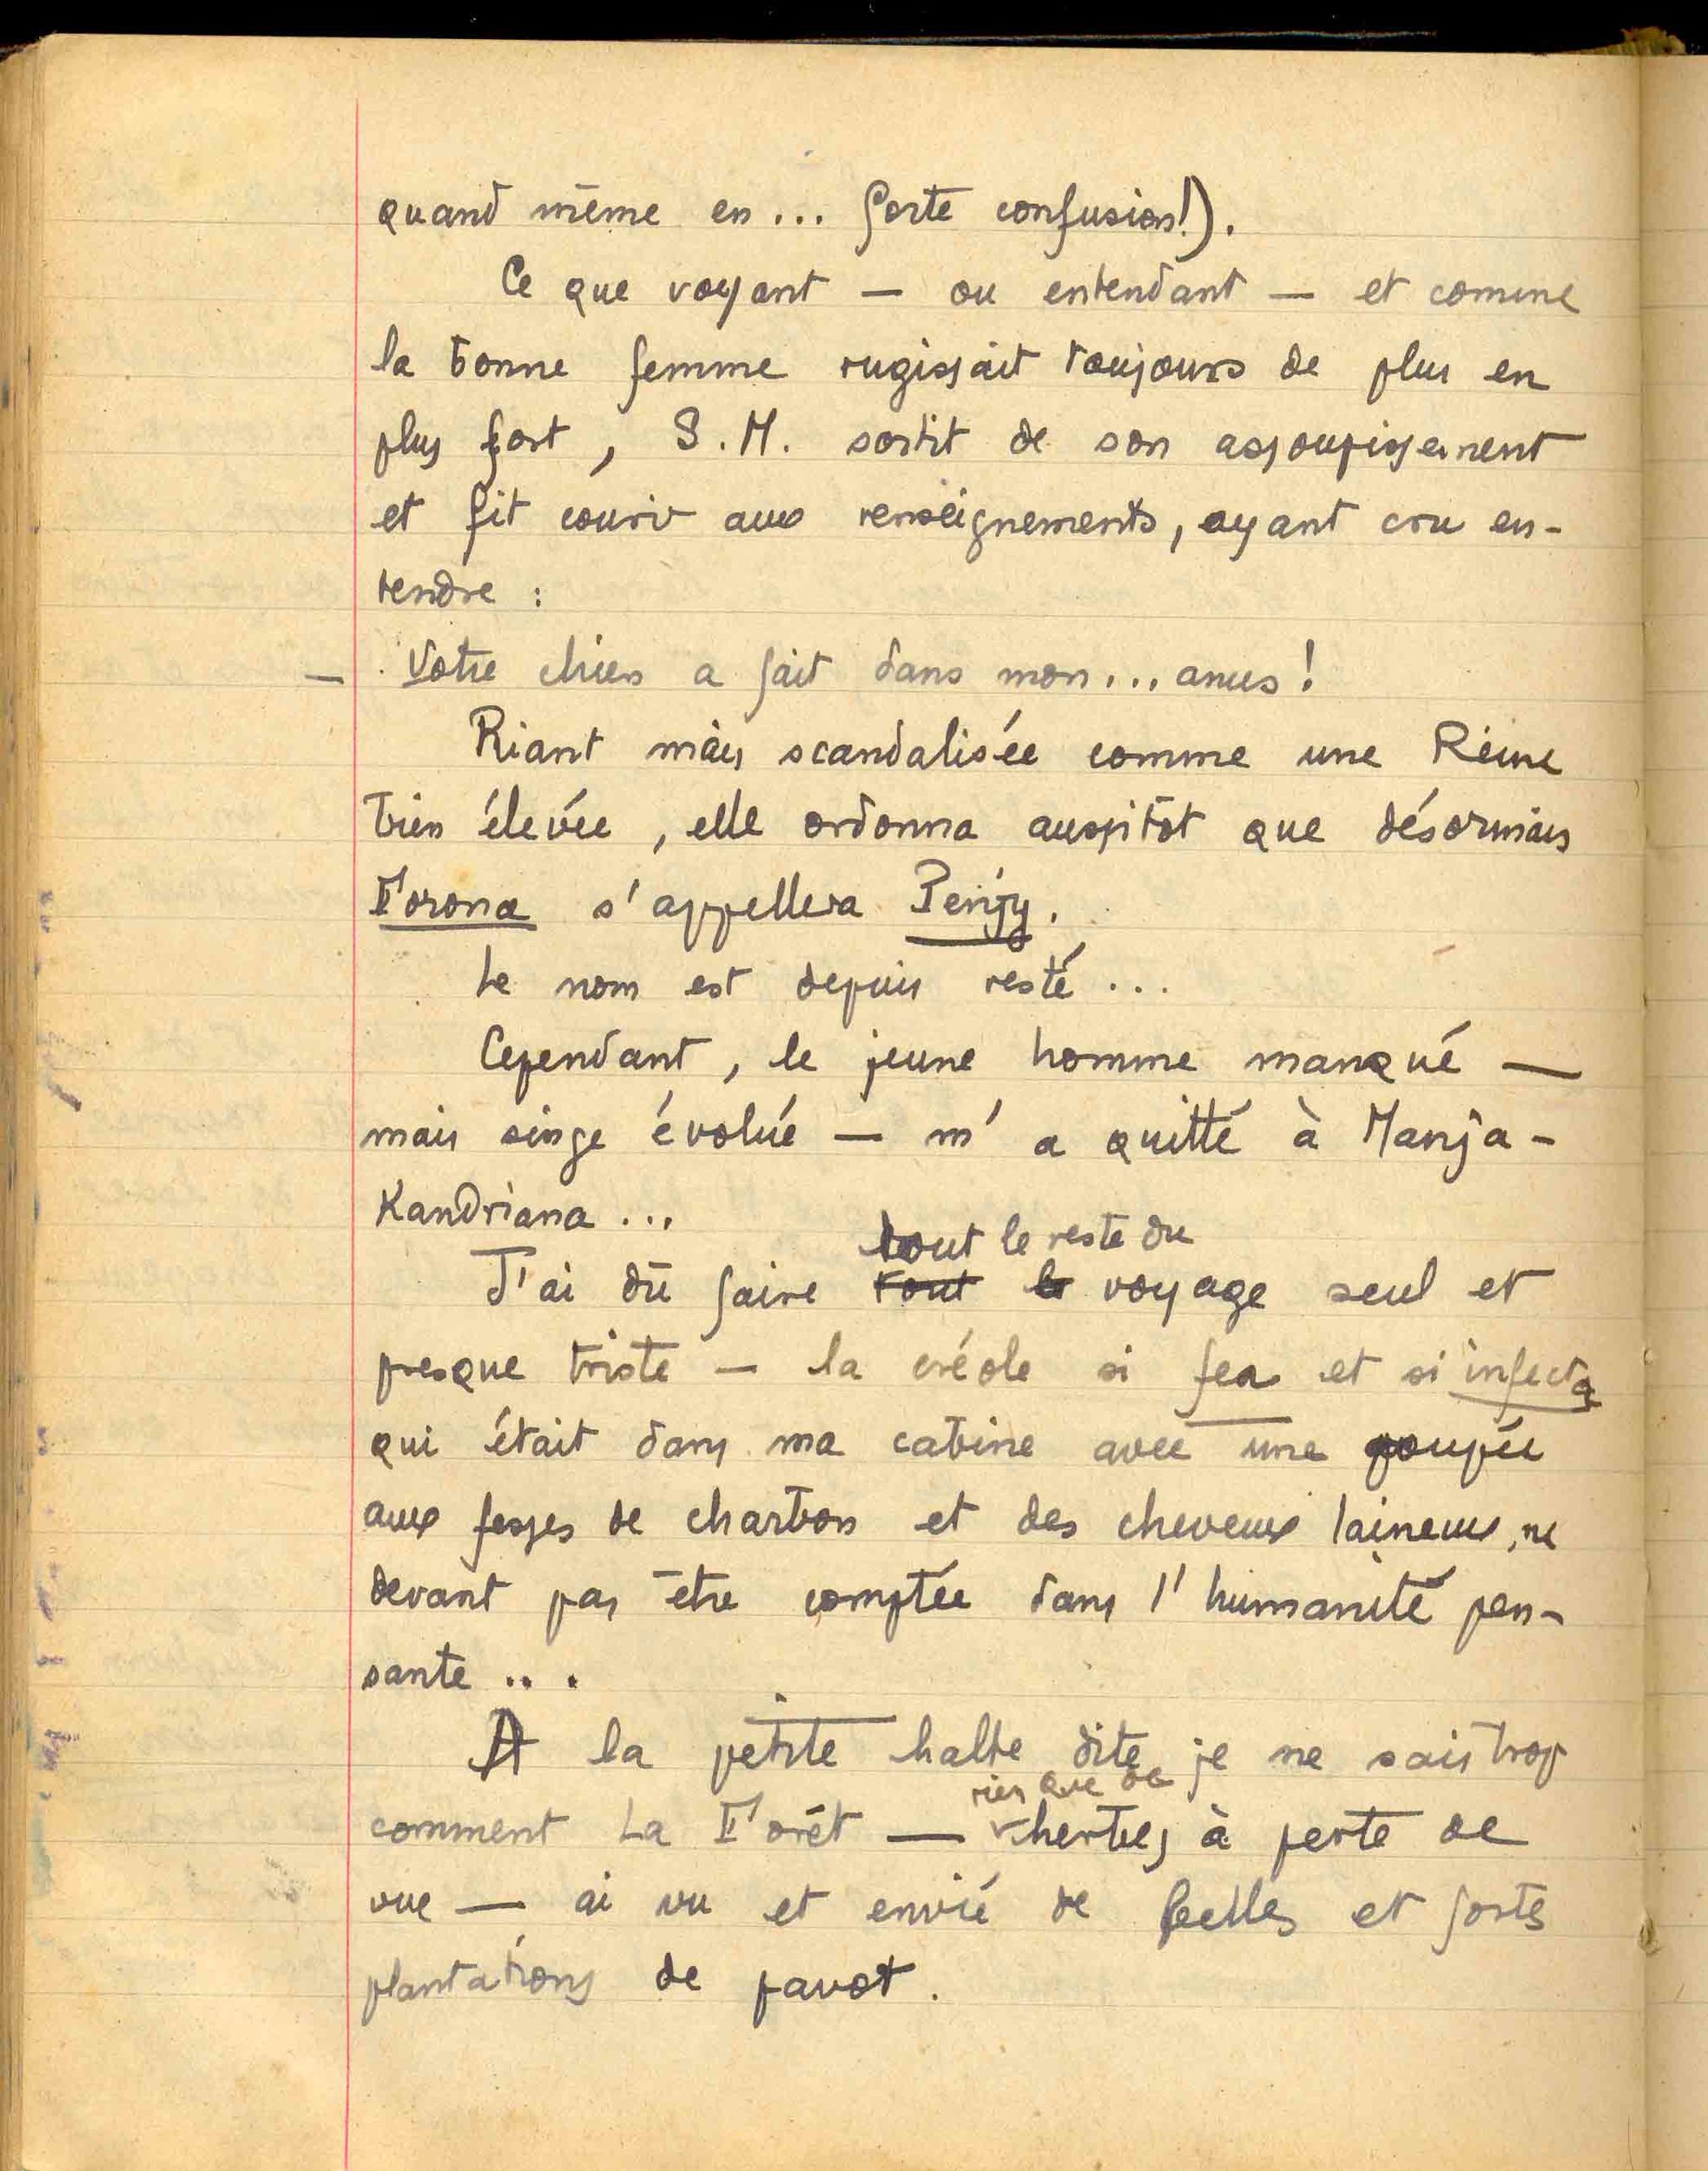 quand même en... forte confusion!).
Ce que voyant — ou entendant — et comme
la bonne femme rugissait toujours de plus en
plus fort, S.M. sortit de son assoupissement
et fit courir aux renseignements, ayant cru en-
tendre :
— Votre chien a fait dans mon... anus!
Riant mais scandalisée comme une Reine
bien élevée, elle ordonna aussitôt que désormais
Forona s'appellera Penjy.
Le nom est depuis resté...
Cependant, le jeune homme manqué —
mais singe évolué — m'a quitté à Manja-
Kandriana...
tout le reste du
J'ai dû faire tout le voyage seul et
presque triste — la créole si fea et si infecta
qui était dans ma cabine avec une poupée
aux fesses de charbon et des cheveux laineux, ne
devant pas être comptée dans l'humanité pen-
sante...
A la petite halte dite je ne sais trop
rien que de
comment La Forêt — herbes à perte de
vue — ai vu et envié de belles et fortes
plantations de pavot.